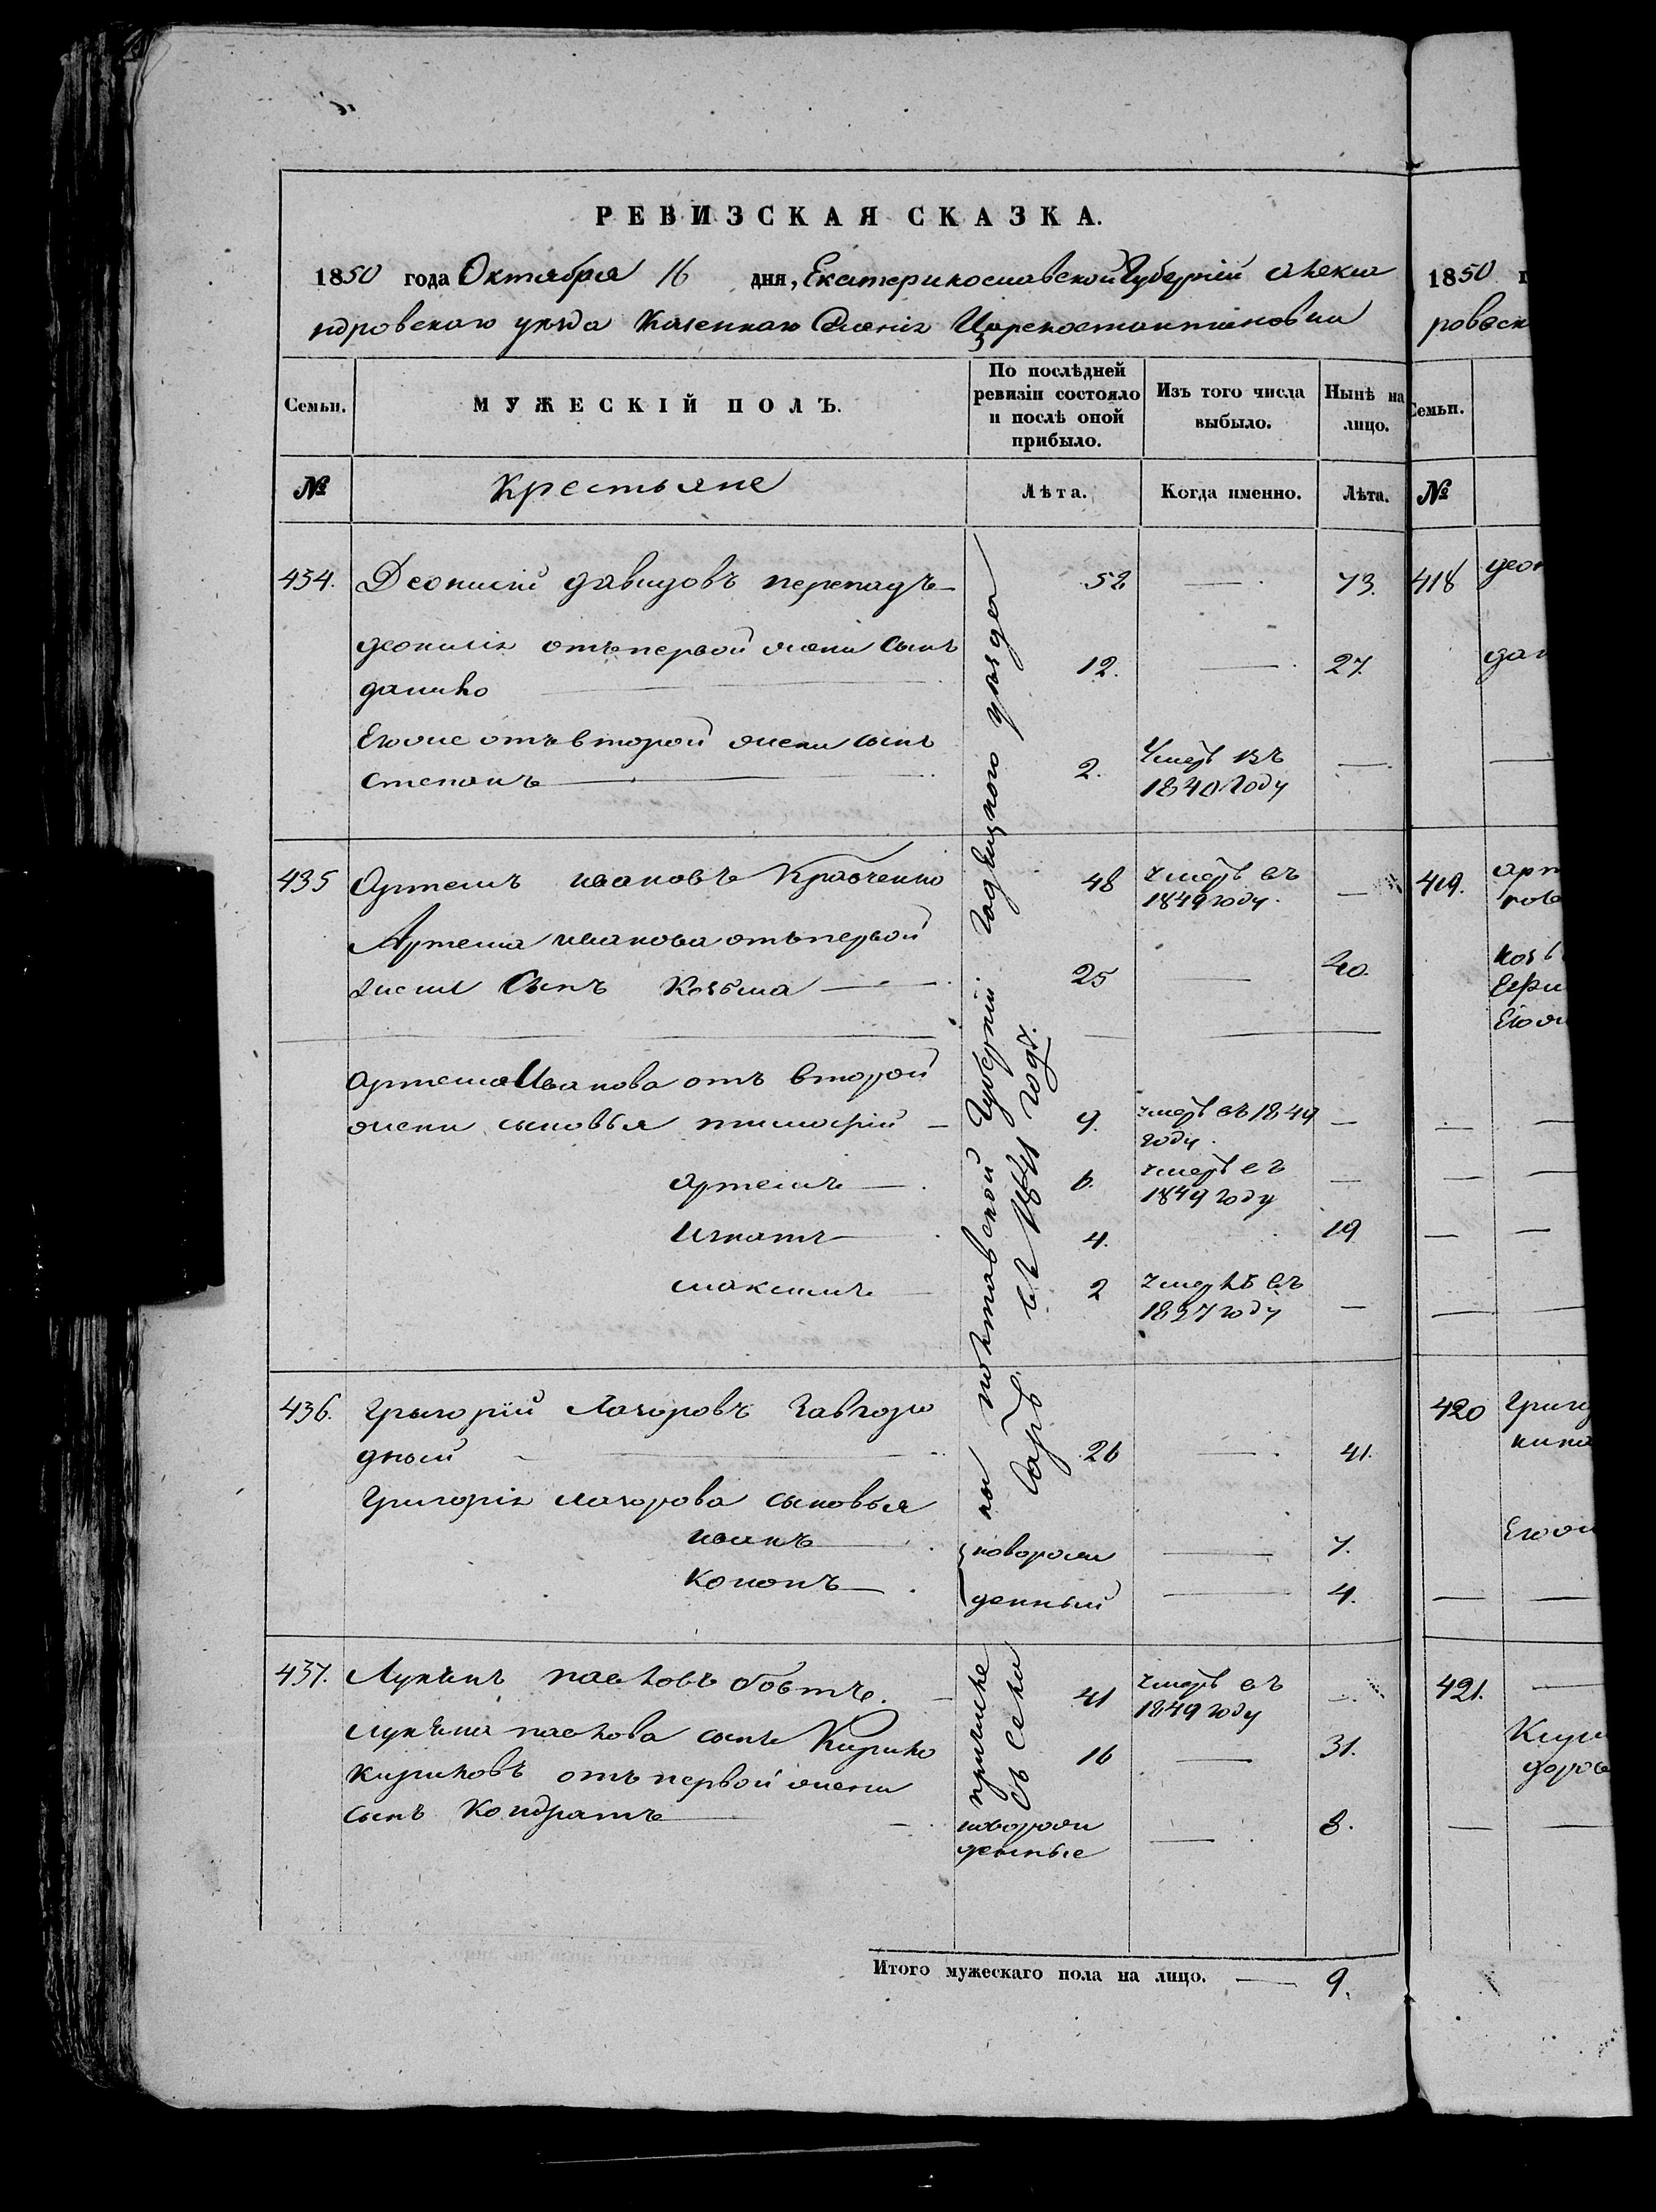 РЕВИЗСКАЯ СКАЗКА.
1850 года Октября 16 дня, Екатеринославской Губерніи Алекса
ндровскаго уѣзда Казеннаго Селенія Цареконстантиновки
Семьи.
МУЖЕСКІЙ ПОЛЪ.
По послѣдней
ревизіи состояло
и послѣ оной
прибыло.
Изъ того числа
выбыло.
Нынѣ на
лицо.
№
Крестьяне
Лѣта.
Когда именно.
Лѣта.
434. Деонисій давидовъ 52 — 73.
деонисія отъ первой жены сынъ
данило — 12. — 27.
Егоже отъ второй жены сынъ
степанъ — 2. Умеръ въ
1840 году —
435 Артемъ ивановъ Кравченко 48 умеръ въ
1849 году. —
Артема иванова отъ первой
жены Сынъ Козьма — 25 — 40.
Артема Иванова отъ второй
жены сыновья тимофѣй — 9. умеръ въ 1849
году. —
артемъ — 6. умеръ въ
1849 году —
игнатъ — 4. 19
максимъ 2 умеръ въ
1837 году —
436. Григорій Лазоровъ
дный — 26 — 41.
Григорія лазорова сыновья
иванъ — новорож — 7.
Кононъ — денный — 4.
437. Лукьянъ павловъ 41 умеръ въ
1849 году —
лукьяна павлова сынъ Кирило 16 — 31.
кириловъ отъ первой жены
сынъ Кондратъ — новорож
денные — 8.
полтавской Губерніи Гадяцкого уѣзда
въ 1841 году.
съ села
Итого мужескаго пола на лицо. — 9.
1850 г
Семьи.
№
418
419.
420
421.